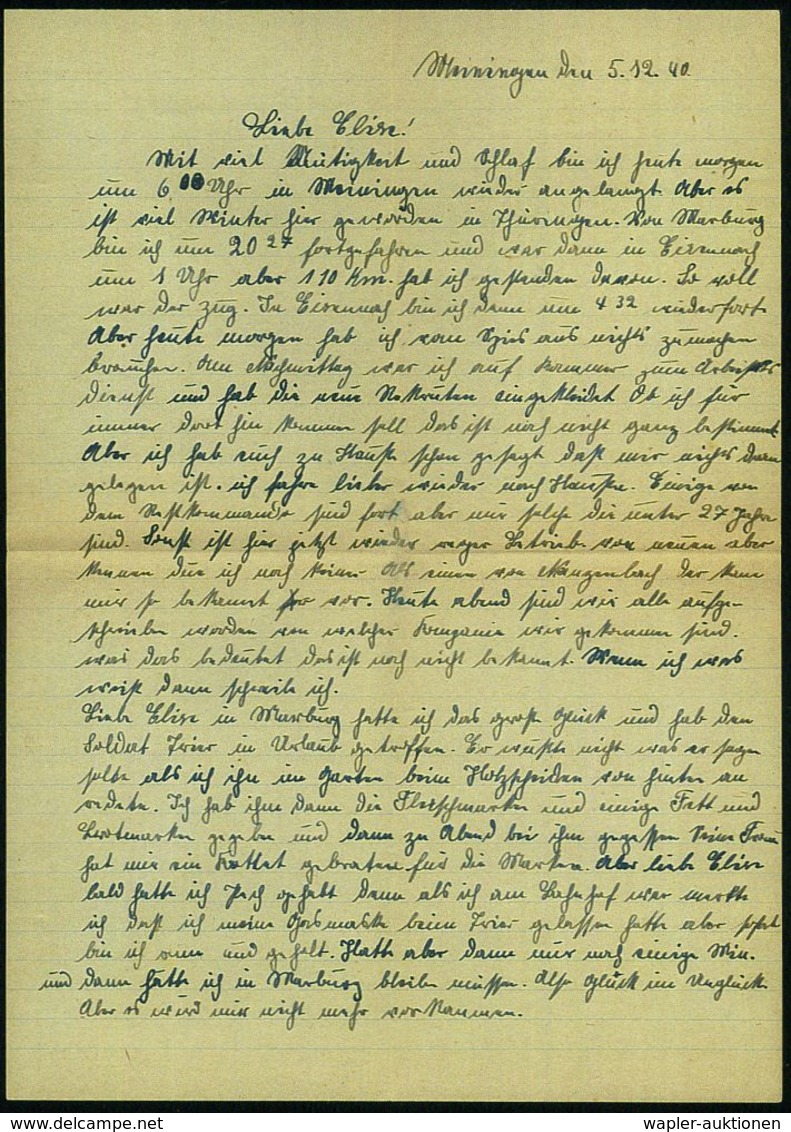 Meiningen den 5.12.40
Liebe Elise!
Mit viel Mütigkeit und Schlaf bin ich heute morgen
um 6 00 Uhr in Meiningen wieder angelangt. Aber es
ist viel Winter hier geworden in Thüringen. Von Marburg
bin ich um 20 27 fortgefahren und war dann in Eisennach
um 1 Uhr aber 110 Km. hab ich gestanden davon. So voll
war der Zug. In Eisennach bin ich dann um 4 32 wiederfort.
Aber heute morgen hab ich vom Spies aus nichts zumachen
brauchen. Am Nachmittag war ich auf Kammer zum Arbeits
dienst und hab die neue Rekruten eingekleidet Ob ich für
immer dort hin kommen soll das ist noch nicht ganz bestimmt
Aber ich hab euch zu Hauße schon gesagt daß mir nichts dran
gelegen ist. ich fahre lieber wieder nach Haußen. Einige von
dem Restkommando sind fort aber nur solche die unter 27 Jahre
sind. Sonst ist hier jetzt wieder reger Betrieb von neuen aber
kennen due ich noch keiner Als einen von Manzenbach der kam
mir so bekannt vor. Heute abend sind wir alle aufge
schrieben worden von welcher Kompanie wir gekommen sind.
was das bedeutet das ist noch nicht bekannt. Wenn ich was
weiß dann schreibe ich.
Liebe Elise in Marburg hatte ich das große Glück und hab den
Soldat Trier in Urlaub getroffen. Er wußte nicht was er sagen
sollte als ich ihn im Garten beim Holzscheiden von hinten an
redete. Ich hab ihm dann die Fleischmarken und einige Fett und
Brotmarken gegeben und dann zu Abend bei ihm gegessen Seine Frau
hat mir ein Kottlet gebraten für die Marken. Aber liebe Elise
bald hatte ich Pech gehabt denn als ich am Bahnhof war merkte
ich daß ich meine Gasmaske beim Trier gelassen hatte aber sofort
bin ich und geholt. Hatte aber dann nur noch einige Min.
und dann hätte ich in Marburg bleiben müssen. Also Glück im Unglück.
Aber es wird mir nicht mehr vorkommen.
wapler-auktionen